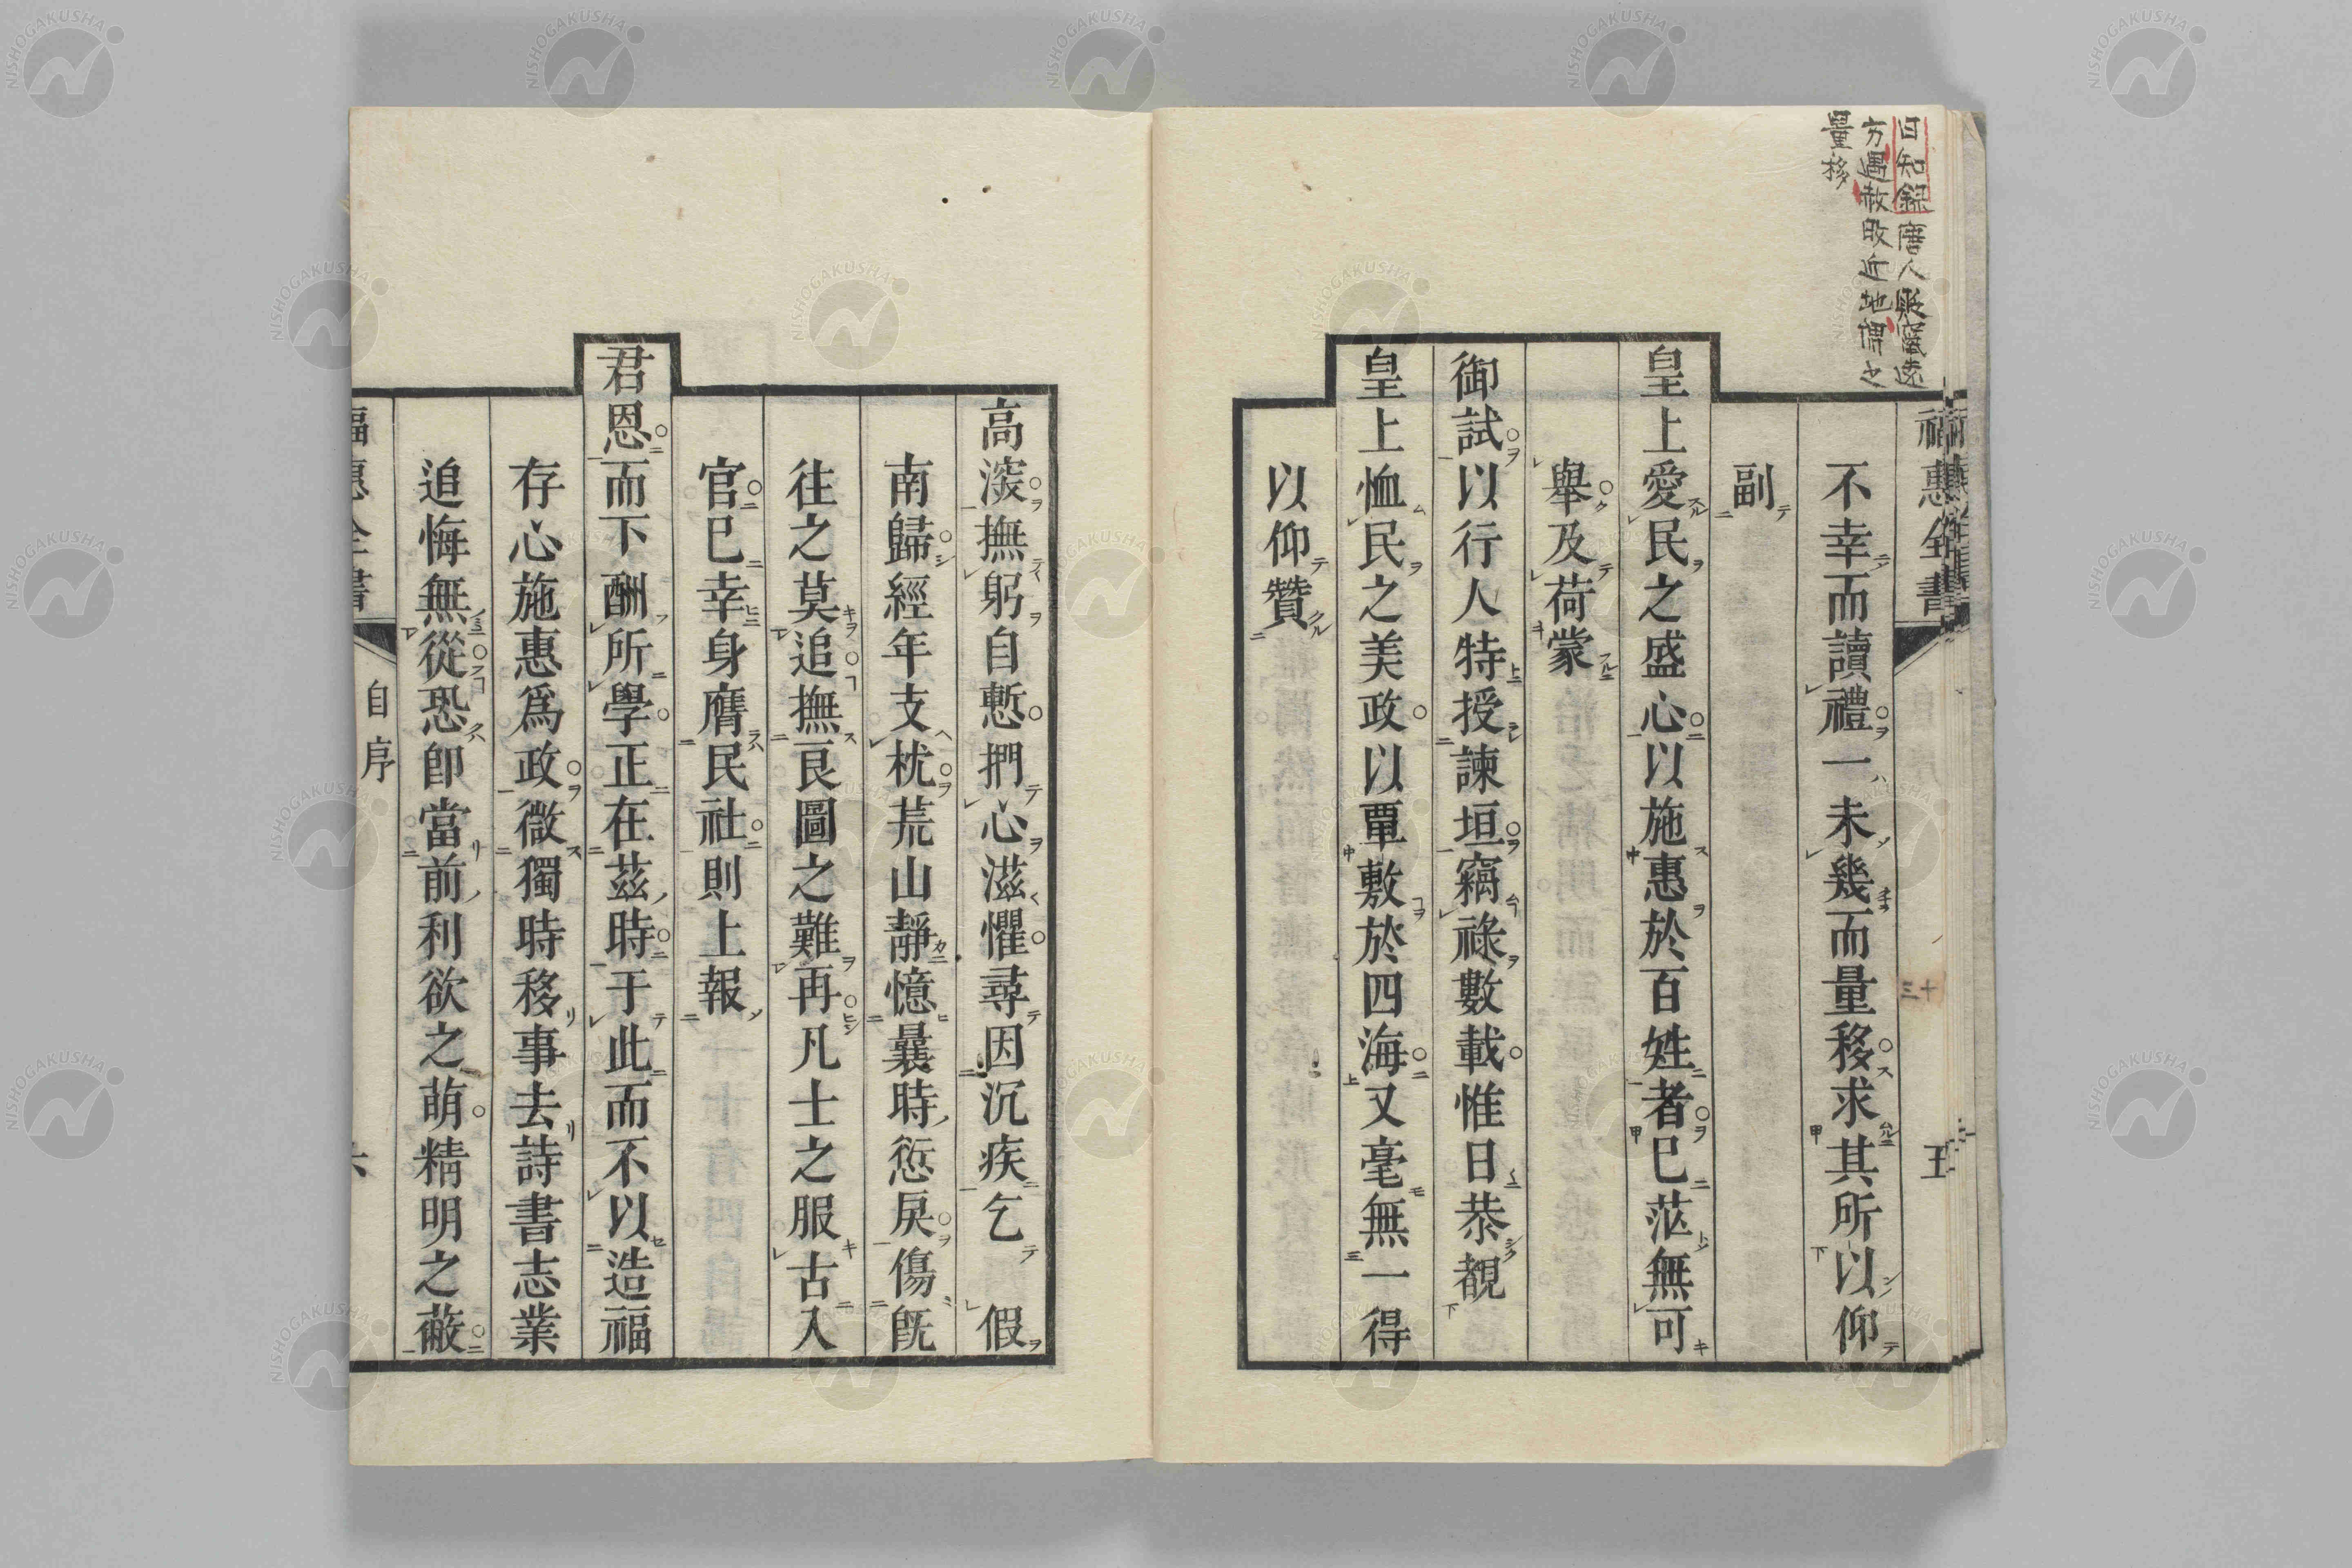 日知錄唐人貶竄遠
方遇赦改近地謂之
量移
福惠全書
五
不幸而讀禮一未幾而量移求其所以仰
副
皇上愛民之盛心以施惠於百姓者已茫無可
舉及荷蒙
御試以行人特授諫垣竊祿數載惟日恭覩
皇上恤民之美政以覃敷於四海又毫無一得
以仰贊
高深撫躬自慙捫心滋懼尋因沉疾乞假
南歸經年支枕荒山靜憶曩時愆戾傷旣
往之莫追撫良圖之難再凡士之服古入
官已幸身膺民社則上報
君恩而下酬所學正在茲時于此而不以造福
存心施惠爲政微獨時移事去詩書志業
追悔無從恐卽當前利欲之萌精明之蔽
福惠全書
自序
六
NISHOGAKUSHA